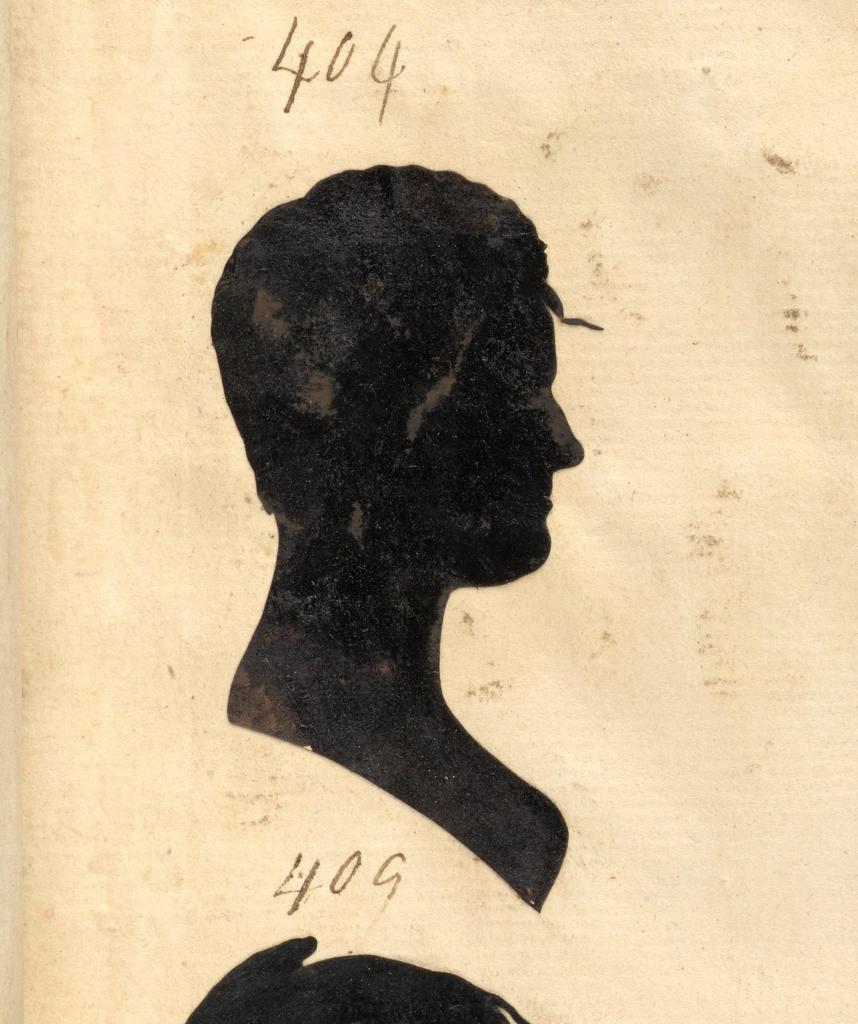 404
409